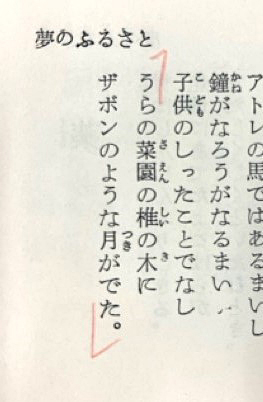 夢のふるさと
アトレの馬ではあるまいし
鐘がなろうがなるまい
子供のしったことでなし
うらの菜園の椎の木に
ザボンのような月がでた。